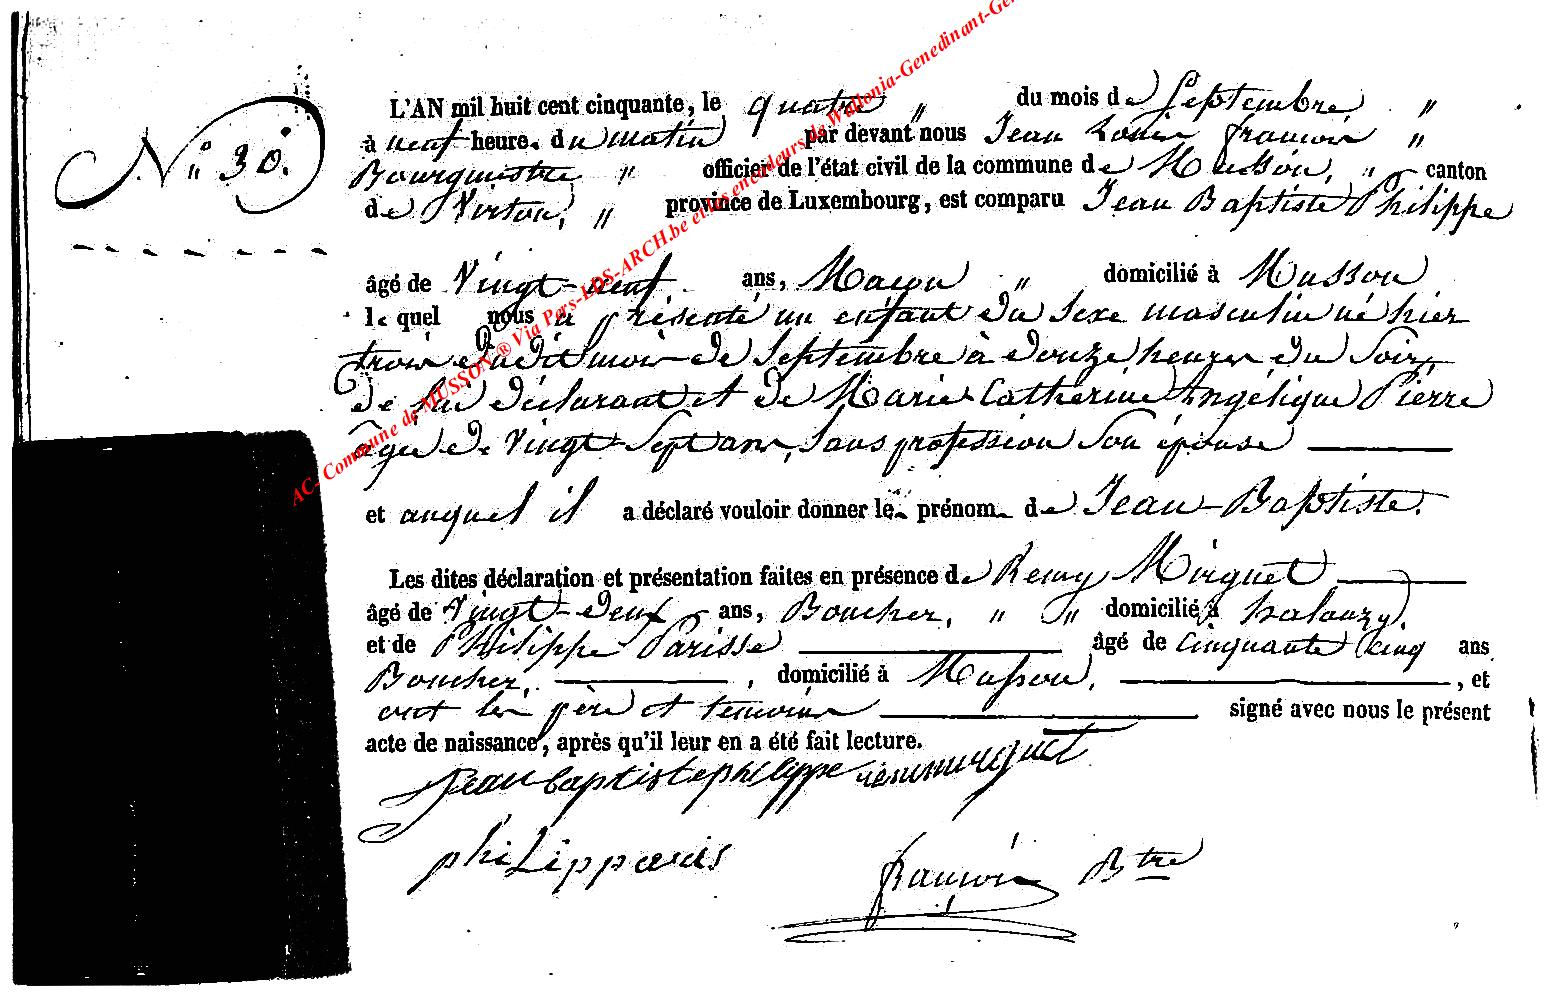 N° 30.
L'AN mil huit cent cinquante, le quatre " du mois de Septembre "
à neuf heure. du matin par devant nous Jean Louis françois "
Bourgmestre " officier de l'état civil de la commune de Musson, " canton
de Virton, " province de Luxembourg, est comparu Jean Baptiste Philippe
âgé de Vingt-neuf ans, Maçon " domicilié à Musson
le quel nous a présenté un enfant du sexe masculin né hier
trois du dit mois de Septembre à douze heures du soir
de lui déclarant et de Marie Catherine Angélique Pierre
âgée de Vingt-Sept ans, sans profession son épouse
et auquel il a déclaré vouloir donner le prénom de Jean-Baptiste.
Les dites déclaration et présentation faites en présence de Remy Mirguet
âgé de Vingt-deux ans, Boucher, " " domicilié à halanzy,
et de Philippe Parisse âgé de cinquante cinq ans
Boucher, , domicilié à Musson, , et
ont les père et témoins signé avec nous le présent
acte de naissance, après qu'il leur en a été fait lecture.
Jean baptiste philippe remi mirguet
phiLipparis
françois Btre
AC- Commune de MUSSON ® Via Pers-LDS-ARCH.be et les encodeurs de Wallonia-Genedinant-Ge